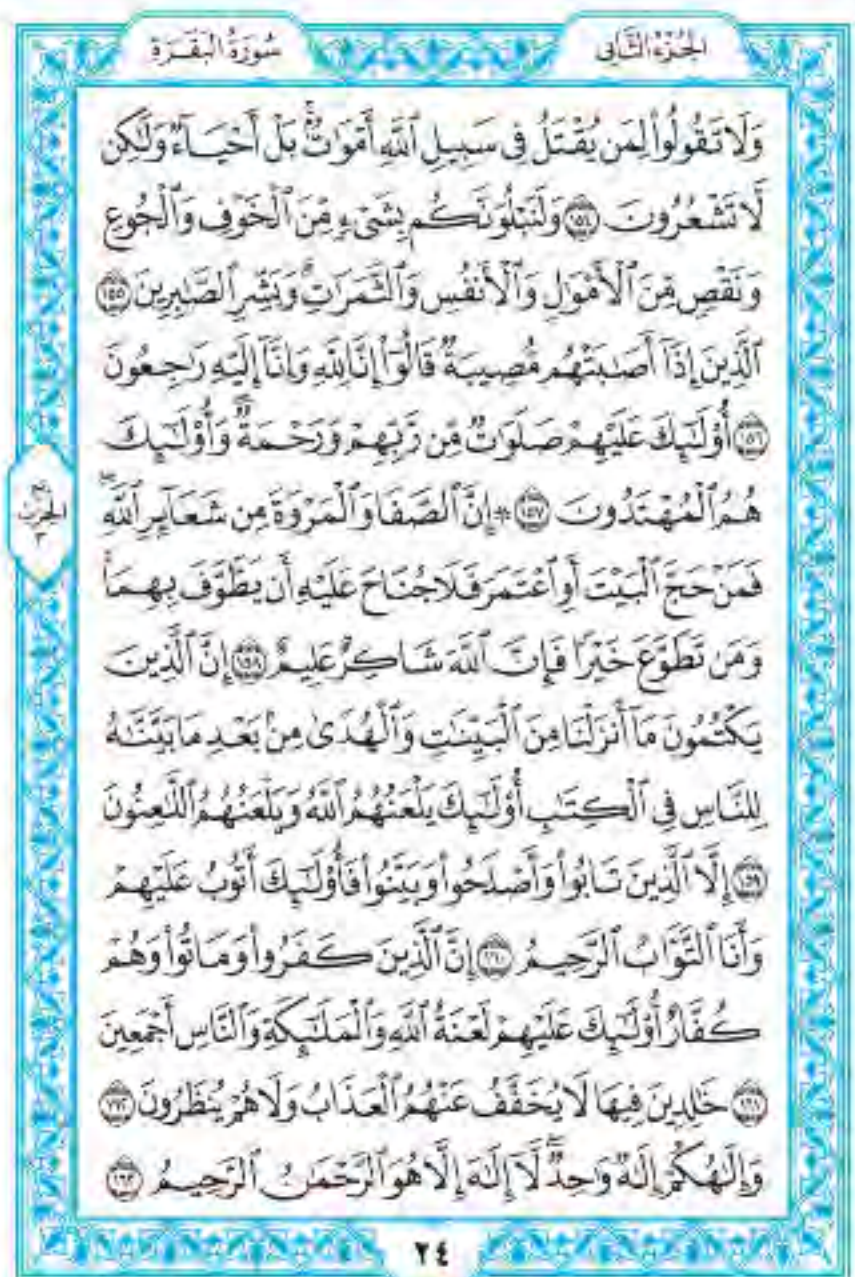 الجُزْءُ الثَّانِي
سُورَةُ البَقَرَةِ
وَلَا تَقُولُواْ لِمَن يُقۡتَلُ فِي سَبِيلِ ٱللَّهِ أَمۡوَٰتُۢۚ بَلۡ أَحۡيَآءٞ وَلَٰكِن
لَّا تَشۡعُرُونَ ١٥٤ وَلَنَبۡلُوَنَّكُم بِشَيۡءٖ مِّنَ ٱلۡخَوۡفِ وَٱلۡجُوعِ
وَنَقۡصٖ مِّنَ ٱلۡأَمۡوَٰلِ وَٱلۡأَنفُسِ وَٱلثَّمَرَٰتِۗ وَبَشِّرِ ٱلصَّٰبِرِينَ ١٥٥
ٱلَّذِينَ إِذَآ أَصَٰبَتۡهُم مُّصِيبَةٞ قَالُوٓاْ إِنَّا لِلَّهِ وَإِنَّآ إِلَيۡهِ رَٰجِعُونَ
١٥٦ أُوْلَٰٓئِكَ عَلَيۡهِمۡ صَلَوَٰتٞ مِّن رَّبِّهِمۡ وَرَحۡمَةٞۖ وَأُوْلَٰٓئِكَ
هُمُ ٱلۡمُهۡتَدُونَ ١٥٧ ۞ إِنَّ ٱلصَّفَا وَٱلۡمَرۡوَةَ مِن شَعَآئِرِ ٱللَّهِۖ
فَمَنۡ حَجَّ ٱلۡبَيۡتَ أَوِ ٱعۡتَمَرَ فَلَا جُنَاحَ عَلَيۡهِ أَن يَطَّوَّفَ بِهِمَاۚ
وَمَن تَطَوَّعَ خَيۡرٗا فَإِنَّ ٱللَّهَ شَاكِرٌ عَلِيمٌ ١٥٨ إِنَّ ٱلَّذِينَ
يَكۡتُمُونَ مَآ أَنزَلۡنَا مِنَ ٱلۡبَيِّنَٰتِ وَٱلۡهُدَىٰ مِنۢ بَعۡدِ مَا بَيَّنَّٰهُ
لِلنَّاسِ فِي ٱلۡكِتَٰبِ أُوْلَٰٓئِكَ يَلۡعَنُهُمُ ٱللَّهُ وَيَلۡعَنُهُمُ ٱللَّٰعِنُونَ
١٥٩ إِلَّا ٱلَّذِينَ تَابُواْ وَأَصۡلَحُواْ وَبَيَّنُواْ فَأُوْلَٰٓئِكَ أَتُوبُ عَلَيۡهِمۡ
وَأَنَا ٱلتَّوَّابُ ٱلرَّحِيمُ ١٦٠ إِنَّ ٱلَّذِينَ كَفَرُواْ وَمَاتُواْ وَهُمۡ
كُفَّارٌ أُوْلَٰٓئِكَ عَلَيۡهِمۡ لَعۡنَةُ ٱللَّهِ وَٱلۡمَلَٰٓئِكَةِ وَٱلنَّاسِ أَجۡمَعِينَ
١٦١ خَٰلِدِينَ فِيهَا لَا يُخَفَّفُ عَنۡهُمُ ٱلۡعَذَابُ وَلَا هُمۡ يُنظَرُونَ ١٦٢
وَإِلَٰهُكُمۡ إِلَٰهٞ وَٰحِدٞۖ لَّآ إِلَٰهَ إِلَّا هُوَ ٱلرَّحۡمَٰنُ ٱلرَّحِيمُ ١٦٣
الحزب
٣
٢٤